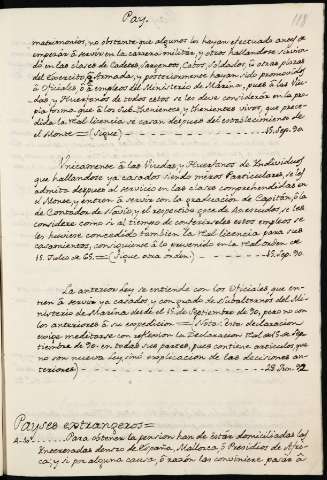 Pay.
118
matrimonios, no obstante que algunos los hayan efectuado antes de
empezar à servir en la carrera militar, y otros hallandose sirvien-
do en las clases de Cadetes, Sargentos, Cabos, Soldados, ù otras plazas
del Exercito, ò Armada, y posteriormente hayan sido promovidos
à Oficiales, ò à empleos del Ministerio de Marina, pues à las Viu-
das y Huerfanos de todos estos se les debe considerar en la pro-
pia forma, que à los Sub-thenientes y thenientes vivos, que prece-
dida la Real licencia se casan despues del establecimiento de
el Monte = (Sigue) 15. Sep. 90
Unicamente à las Viudas, y Huerfanos de Individuos
que hallandose ya casados siendo meros Particulares, se les
admita despues al servicio en las clases comprehendidas en
el Monte, y entren à servir con la graduacion de Capitan, ò la
de Contador de Navio, y el respectivo goce de invalidos, se les
considere como si al tiempo de conferirseles estos empleos se
les huviere concedido tambien la Real licencia para sus
casamientos, consiguiente à lo prevenido en la real orden de
15. Julio de 65. = (Sigue otra orden) 15. Sep. 90
La anterior ley se entiende con los Oficiales que en-
tren à servir ya casados, y con grado de Subalternos del Mi-
nisterio de Marina desde el 15. de Septiembre de 90, pero no con
los anteriores à su expedicion = (Nota: Esta declaracion
exige meditarse con reflexion la Declaracion Real de 15. de Sep-
tiembre de 90 en todas sus partes, pues contiene articulos, que
no son nueva ley, sinò explicacion de las decisiones an-
teriores) 28 Jun. 92
Payses extrangeros =
Para obtener la pension han de estàr domiciliadas las
Interesadas dentro de España, Mallorca, ò Presidios de Afri-
ca; y si por alguna causa, ò razon las conviniere pasar à